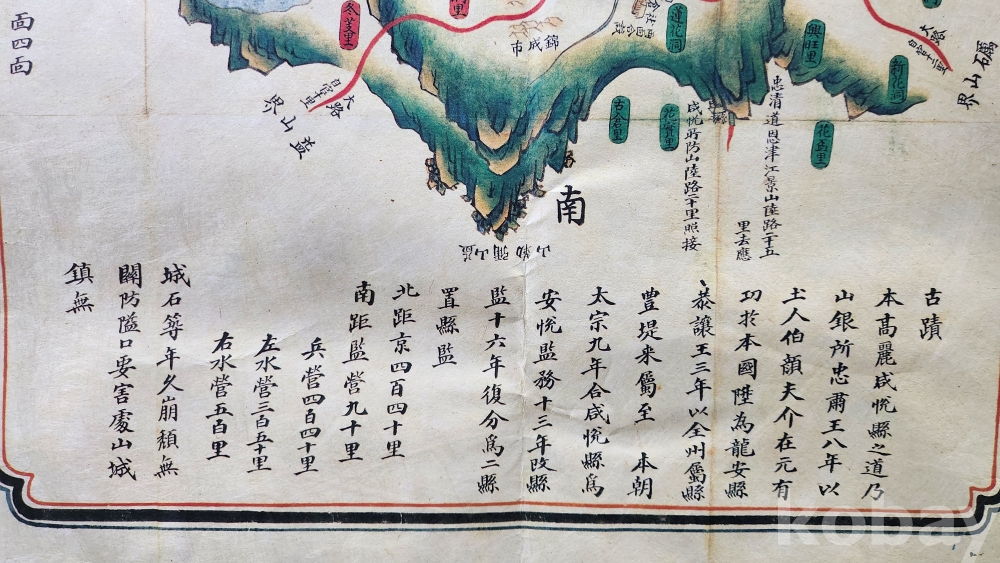 古蹟
本高麗咸悅縣之道乃
山銀所忠肅王八年以
土人伯顔夫介在元有
功於本國陞為龍安縣
恭讓王三年以全州屬縣
豊堤來屬至 本朝
太宗九年合咸悅縣爲
安悅監務十三年改縣
監十六年復分爲二縣
置縣監
北距京四百四十里
南距監營九十里
兵營四百四十里
左水營三百五十里
右水營五百里
城石等年久崩頹無
關防隘口要害處山城
鎮無
南
忠清道恩津江景山陸路二十五
里去應
咸悅所防山陸路二十里照接
大路
自官十二里
礪山界
新花洞
興旺里
花昌里
蓮花洞
古倉里
錦城市
冬芝里
大路
益山界
面四面
kobay